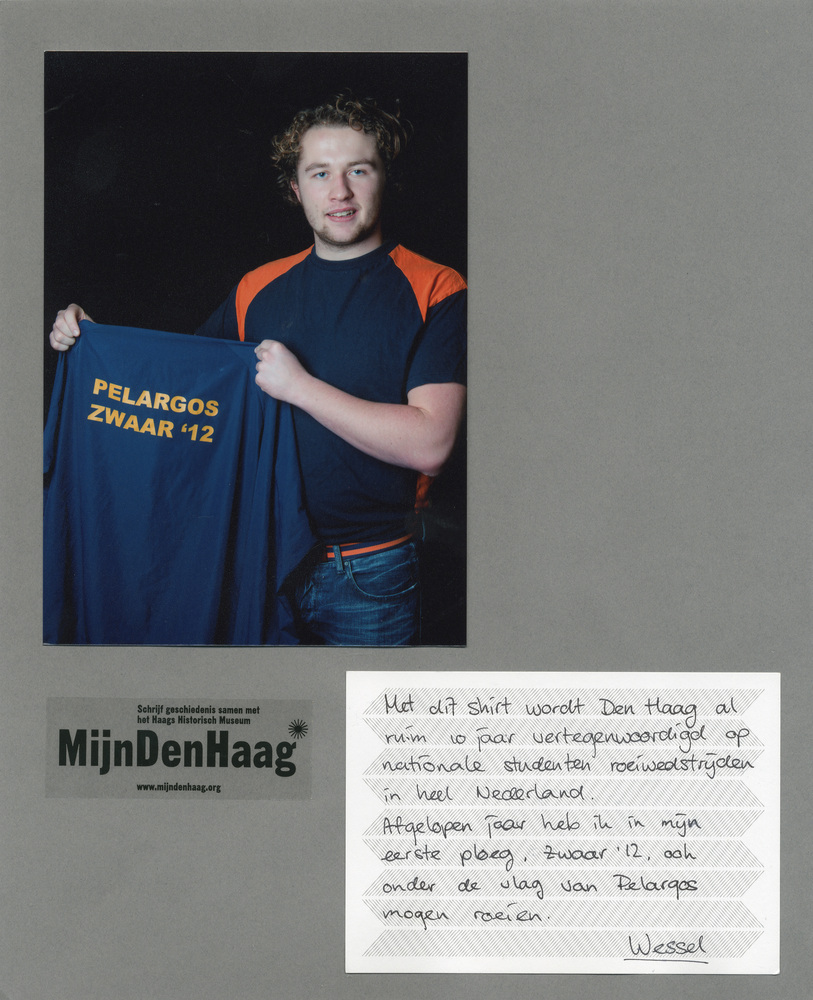 PELARGOS
ZWAAR ‘12
Schrijf geschiedenis samen met
het Haags Historisch Museum
MijnDenHaag
www.mijndenhaag.org
Met dit shirt wordt Den Haag al
ruim 10 jaar vertegenwoordigd op
nationale studenten roeiwedstrijden
in heel Nederland.
Afgelopen jaar heb ik in mijn
eerste ploeg, Zwaar '12, ook
onder de vlag van Pelargos
mogen roeien.
Wessel